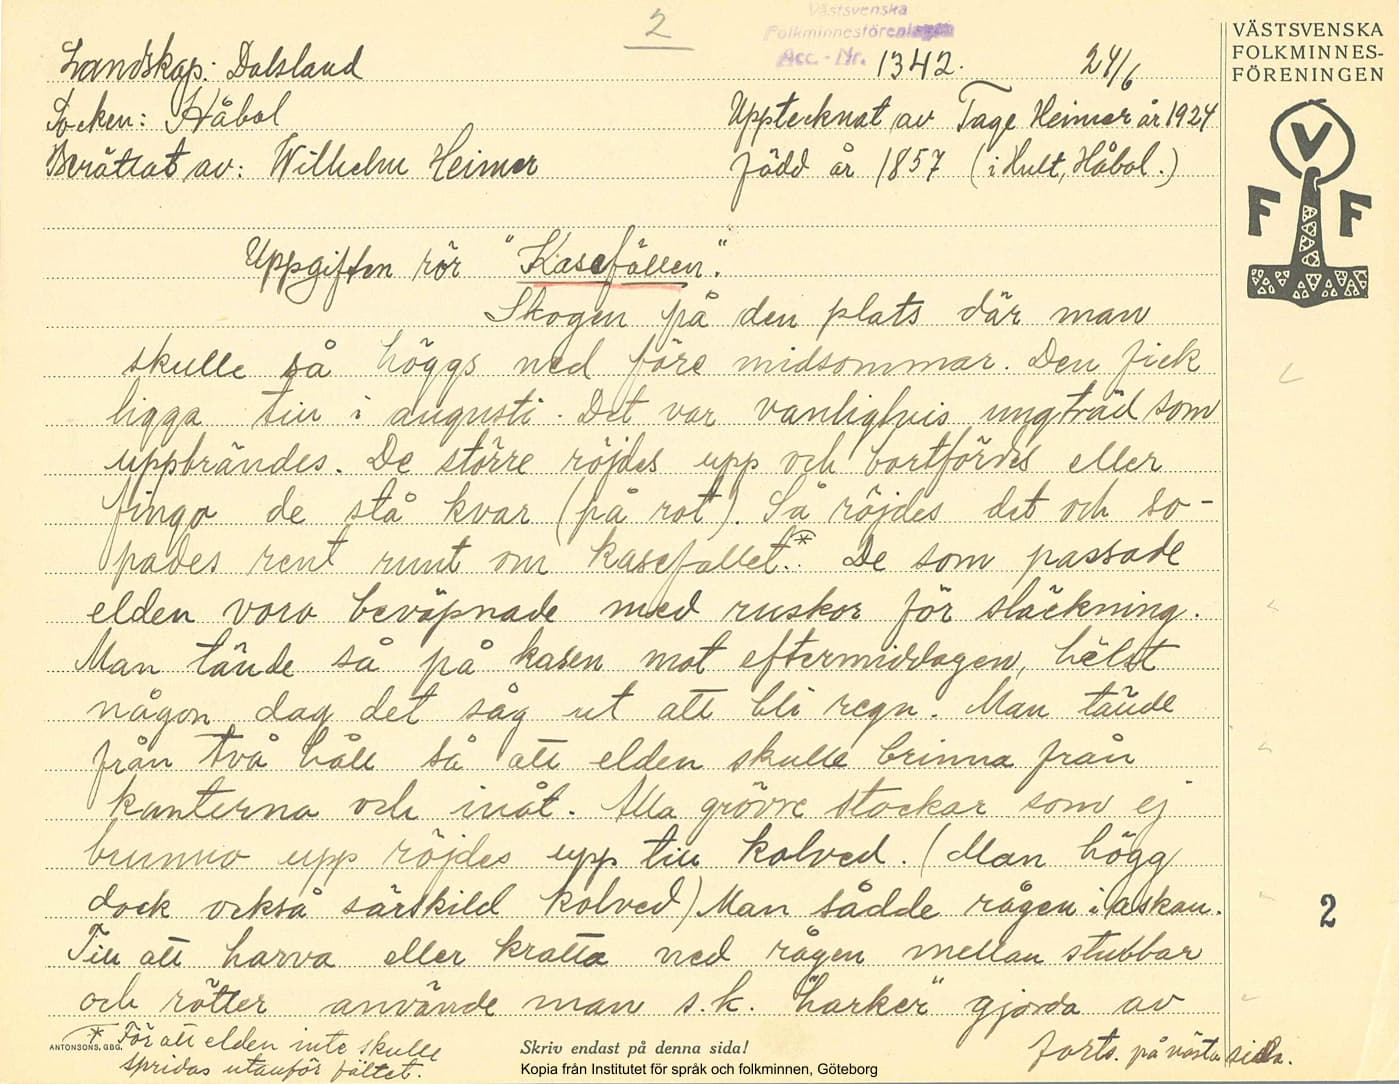 2
Västsvenska
Folkminnesföreningen
Acc.-Nr. 1342. 24/6
VÄSTSVENSKA
FOLKMINNES-
FÖRENINGEN
V
F F
Landskap: Dalsland
Socken: Håbol
Upptecknat av Tage Heimer år 1924
Berättat av: Wilhelm Heimer
född år 1857 (i Hult, Håbol.)
Uppgiften rör "Kasefällen".
Skogen på den plats där man
skulle så höggs ned före midsommar. Den fick
ligga till i augusti. Det var vanligtvis ungträd som
uppbrändes. De större röjdes upp och bortfördes eller
fingo de stå kvar (på rot). Så röjdes det och so-
pades rent runt om kasefallet.* De som passade
elden voro beväpnade med ruskor för släckning.
Man tände så på kasen mot eftermiddagen, hälst
någon dag det såg ut att bli regn. Man tände
från två håll så att elden skulle brinna från
kanterna och inåt. Alla grövre stockar som ej
brunno upp röjdes upp till kolved. (Man högg
dock också särskild kolved) Man sådde rågen i askan.
Till att harva eller kratta ned rågen mellan stubbar
och rötter använde man s.k. "harker" gjorda av
forts. på nästa sida.
* För att elden inte skulle
spridas utanför fältet.
ANTONSONS, GBG.
Skriv endast på denna sida!
Kopia från Institutet för språk och folkminnen, Göteborg
2